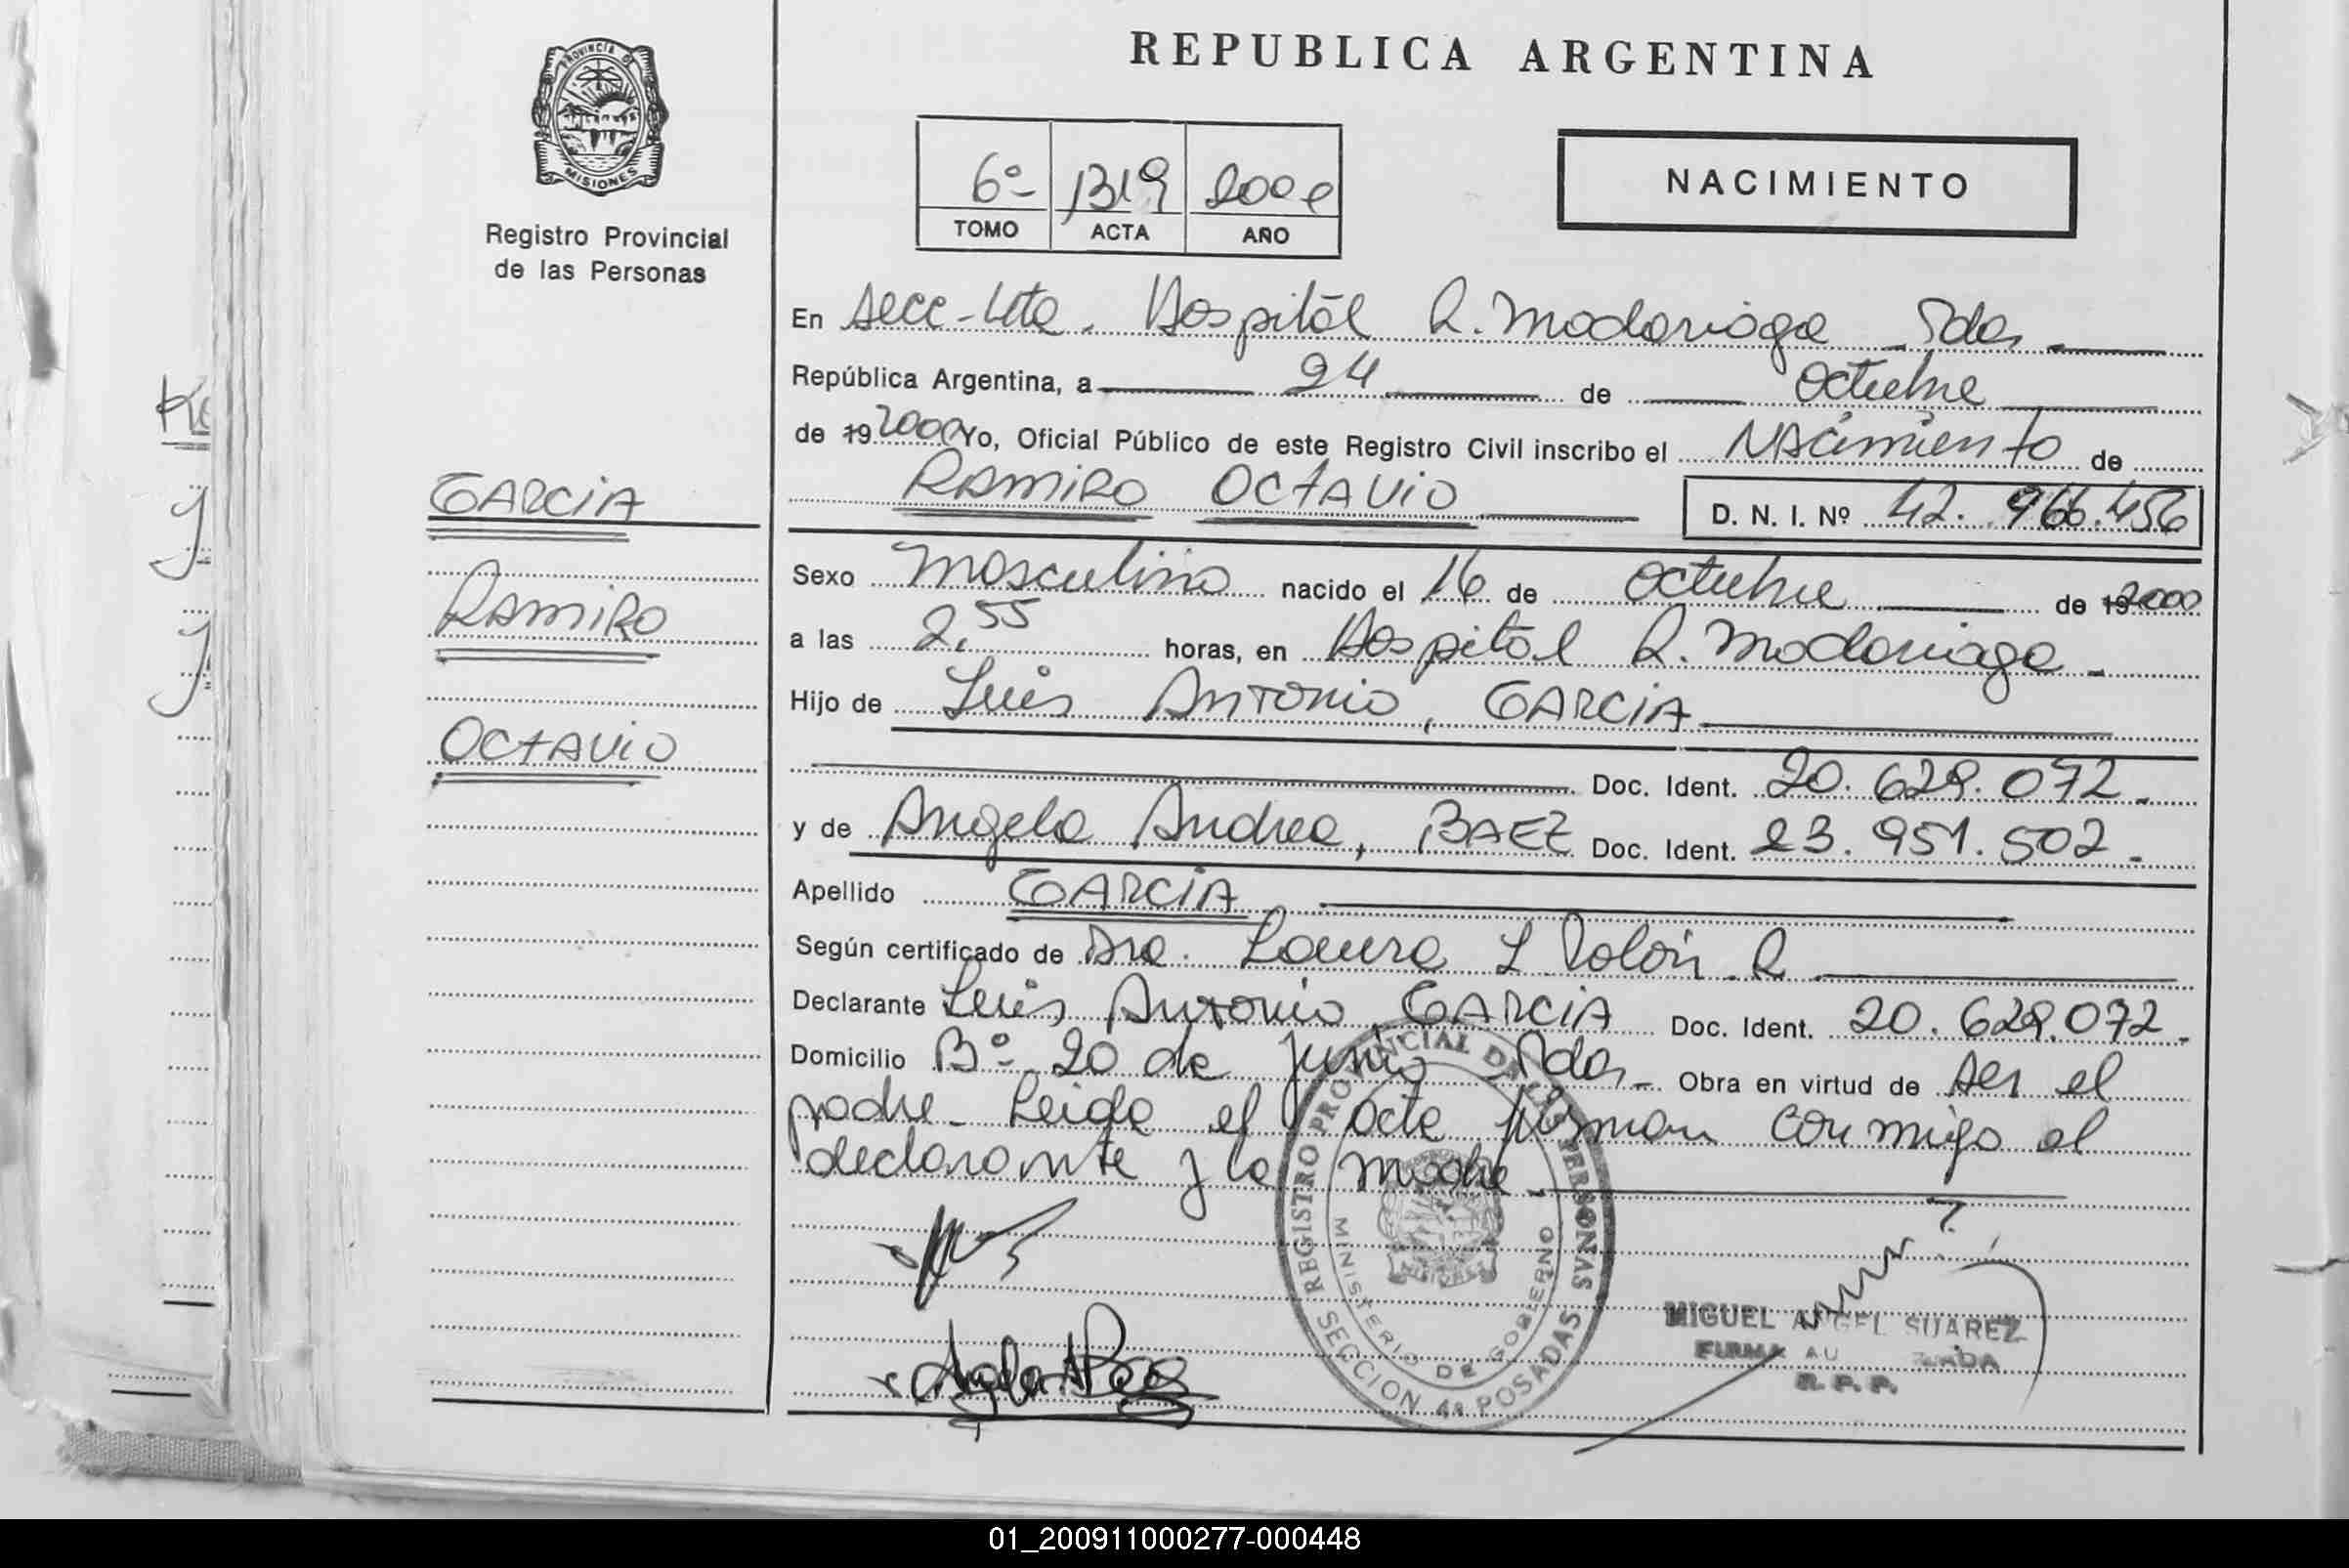 REPUBLICA ARGENTINA
PROVINCIA D
MISIONES
Registro Provincial
de las Personas
6º 1319 2000
TOMO ACTA AÑO
NACIMIENTO
En secc-4ta. Hospital R. Madariaga - Pdas
República Argentina, a 24 de Octubre
de 19 2000 Yo, Oficial Público de este Registro Civil inscribo el NACimiento de
RAMIRO OCTAVIO D. N. I. Nº 42.966.456
GARCIA
RAMIRO
OCTAVIO
Sexo Masculino nacido el 16 de Octubre de 19 2000
a las 2,55 horas, en Hospital R. Madariaga -
Hijo de Luis Antonio, GARCIA
Doc. Ident. 20.629.072.-
y de Angela Andrea, BAEZ Doc. Ident. 23.951.502.-
Apellido GARCIA
Según certificado de Dra. Laura L Rolón R
Declarante Luis Antonio GARCIA Doc. Ident. 20.629.072.-
Domicilio Bº 20 de Junio Pdas.- Obra en virtud de ser el
padre- Leida el acta firman conmigo el
declarante y la madre.-
REGISTRO PROVINCIAL DE LAS PERSONAS
MINISTERIO DE GOBIERNO
SECCION 4ª POSADAS
MISIONES
MIGUEL ANGEL SUAREZ
FIRMA AU
R. P. P.
01_200911000277-000448